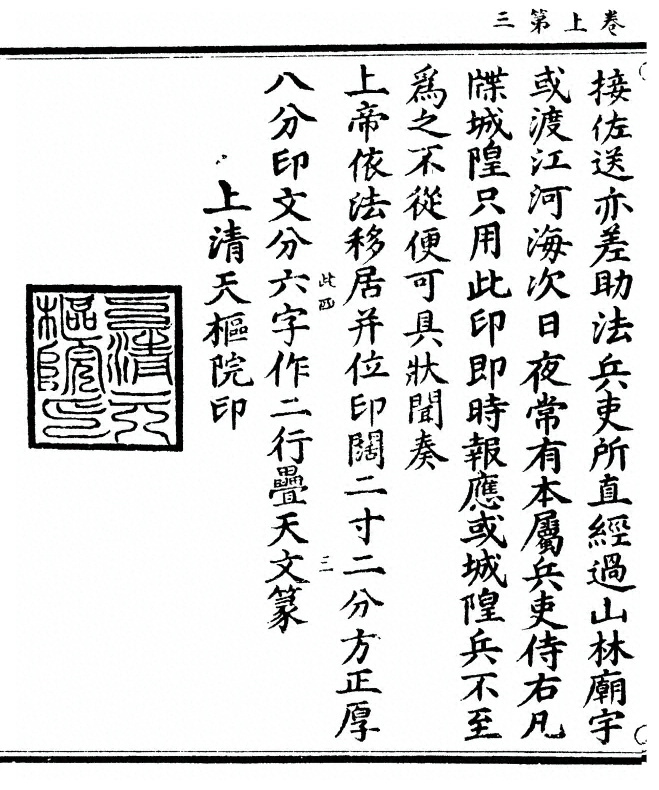 卷上第三
接佐送亦差助法兵吏所直經過山林廟宇
或渡江河海次日夜常有本屬兵吏侍右凡
牒城隍只用此印即時報應或城隍兵不至
爲之不從便可具狀聞奏
上帝依法移居并位印闊二寸二分方正厚
此四
三
八分印文分六字作二行疊天文篆
上清天樞院印
上清天
樞院印